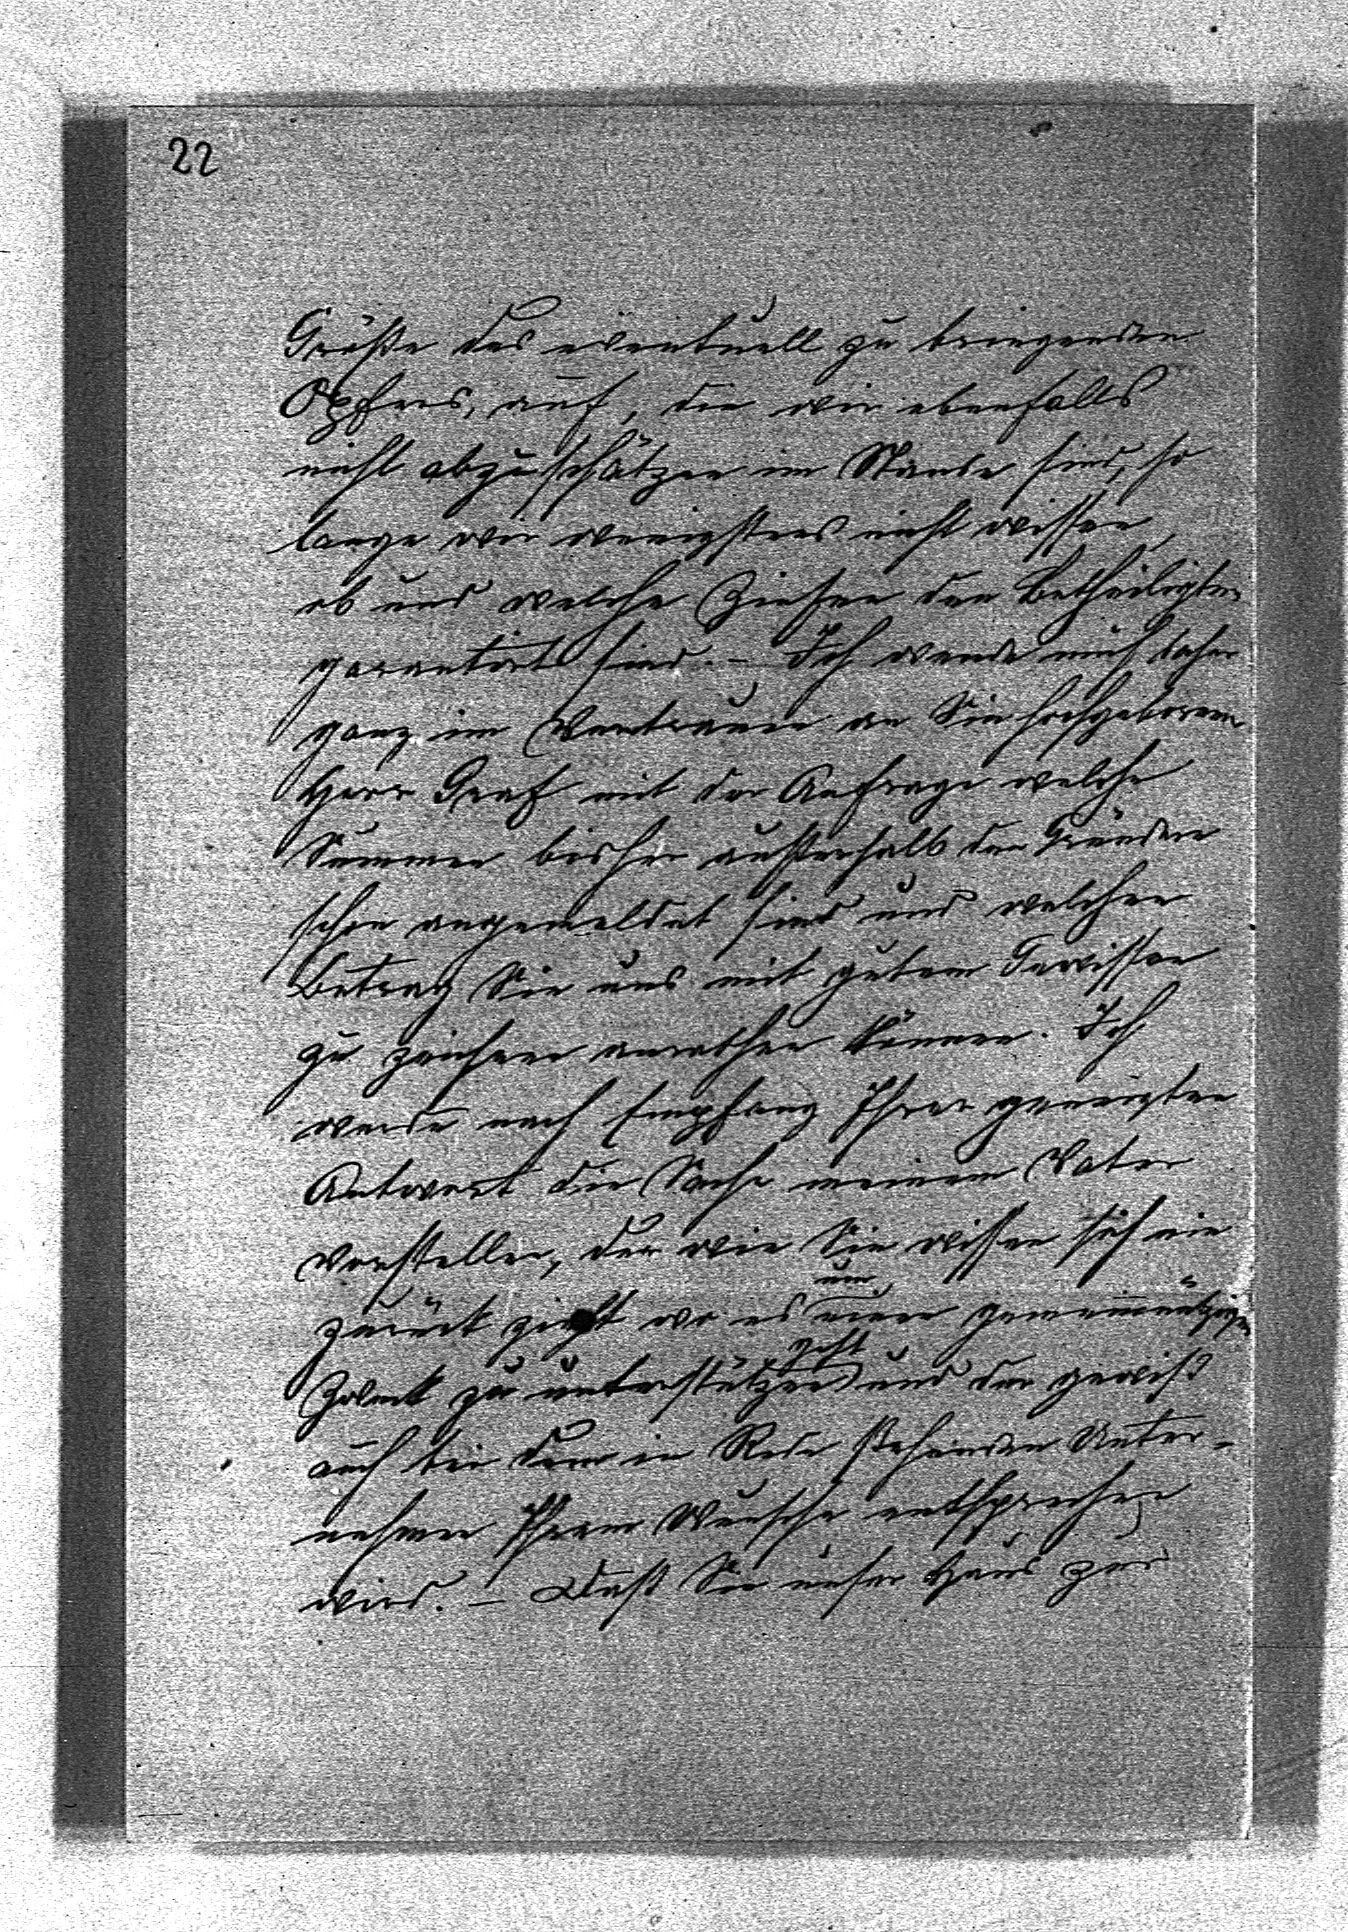 22
Größe des eventuell zu bringenden
Opfers, auf, die wir ebenfalls
nicht abzuschätzen im Stande sind, so
lange wir wenigstens nicht wissen,
ob und welche Zinsen den Betheiligten
garantirt sind. – Ich wende mich daher
ganz im Vertrauen an Sie hochgeborener
Herr Graf mit der Anfrage welche
Summen bisher außerhalb der Gründer
schon angemeldet sind und welchen
Betrag Sie uns mit gutem Gewissen
zu zeichnen anrathen können. Ich
werde nach Empfang Ihrer geneigten
Antwort die Sache meinem Vater
vorstellen, der wie Sie wissen sich nie
zurück zieht wo es um einen gemeinnützigen
Zweck zu unterstützen geht und der gewiß
auch bei dem in Rede stehenden Unter-
nehmen Ihrem Wunsche entsprechen
wird. – Daß Sie unser Haus zur